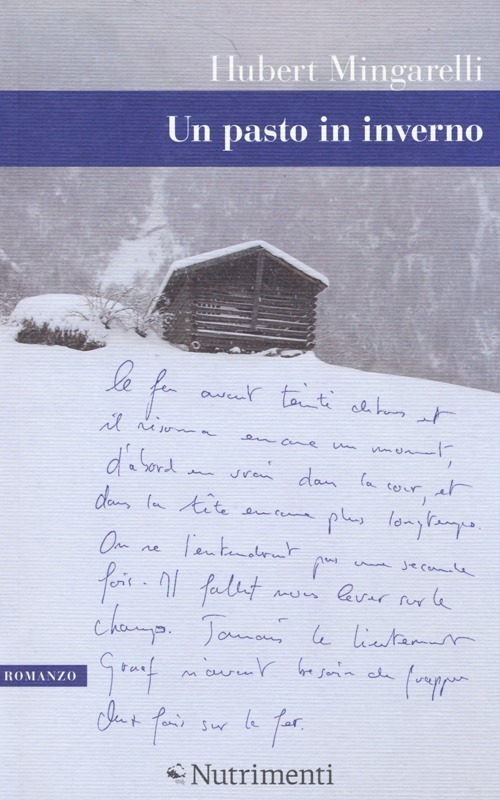 Hubert Mingarelli
Un pasto in inverno
le fer avait tinté dehors et
il résonna encore un moment,
d'abord en vrai dans la cour, et
dans la tête encore plus longtemps.
On ne l'entendrait pas une seconde
fois. Il fallut nous lever sur le
champ. Jamais le lieutenant
Graaf n'avait besoin de frapper
deux fois sur le fer.
ROMANZO
Nutrimenti